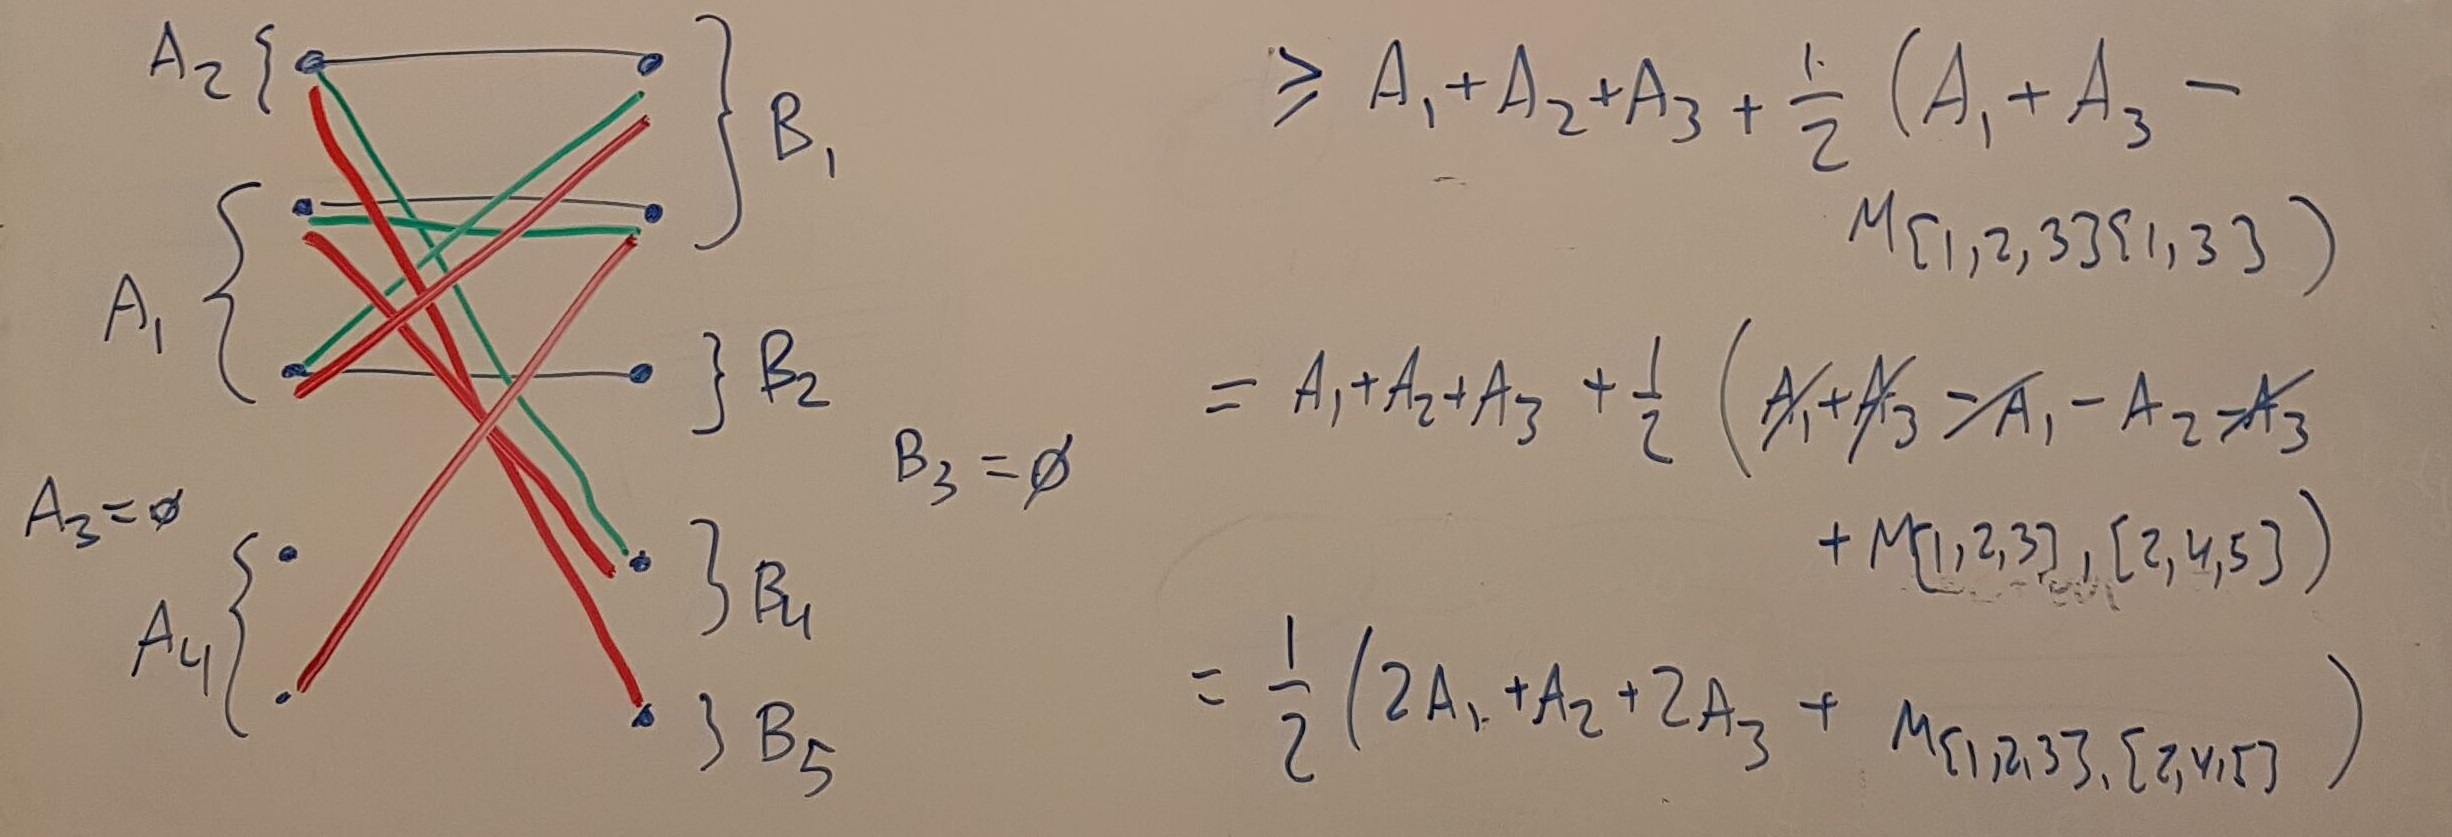 A₂ {
} B₁
A₁ {
} B₂
B₃ = ∅
A₃ = ∅
A₄ {
} B₄
} B₅
≥ A₁ + A₂ + A₃ + 1/2 (A₁ + A₃ −
M{1,2,3}{1,3})
= A₁ + A₂ + A₃ + 1/2 (A₁ + A₃ − A₁ − A₂ − A₃
+ M{1,2,3}, {2,4,5})
= 1/2 (2A₁ + A₂ + 2A₃ + M{1,2,3}, {2,4,5})